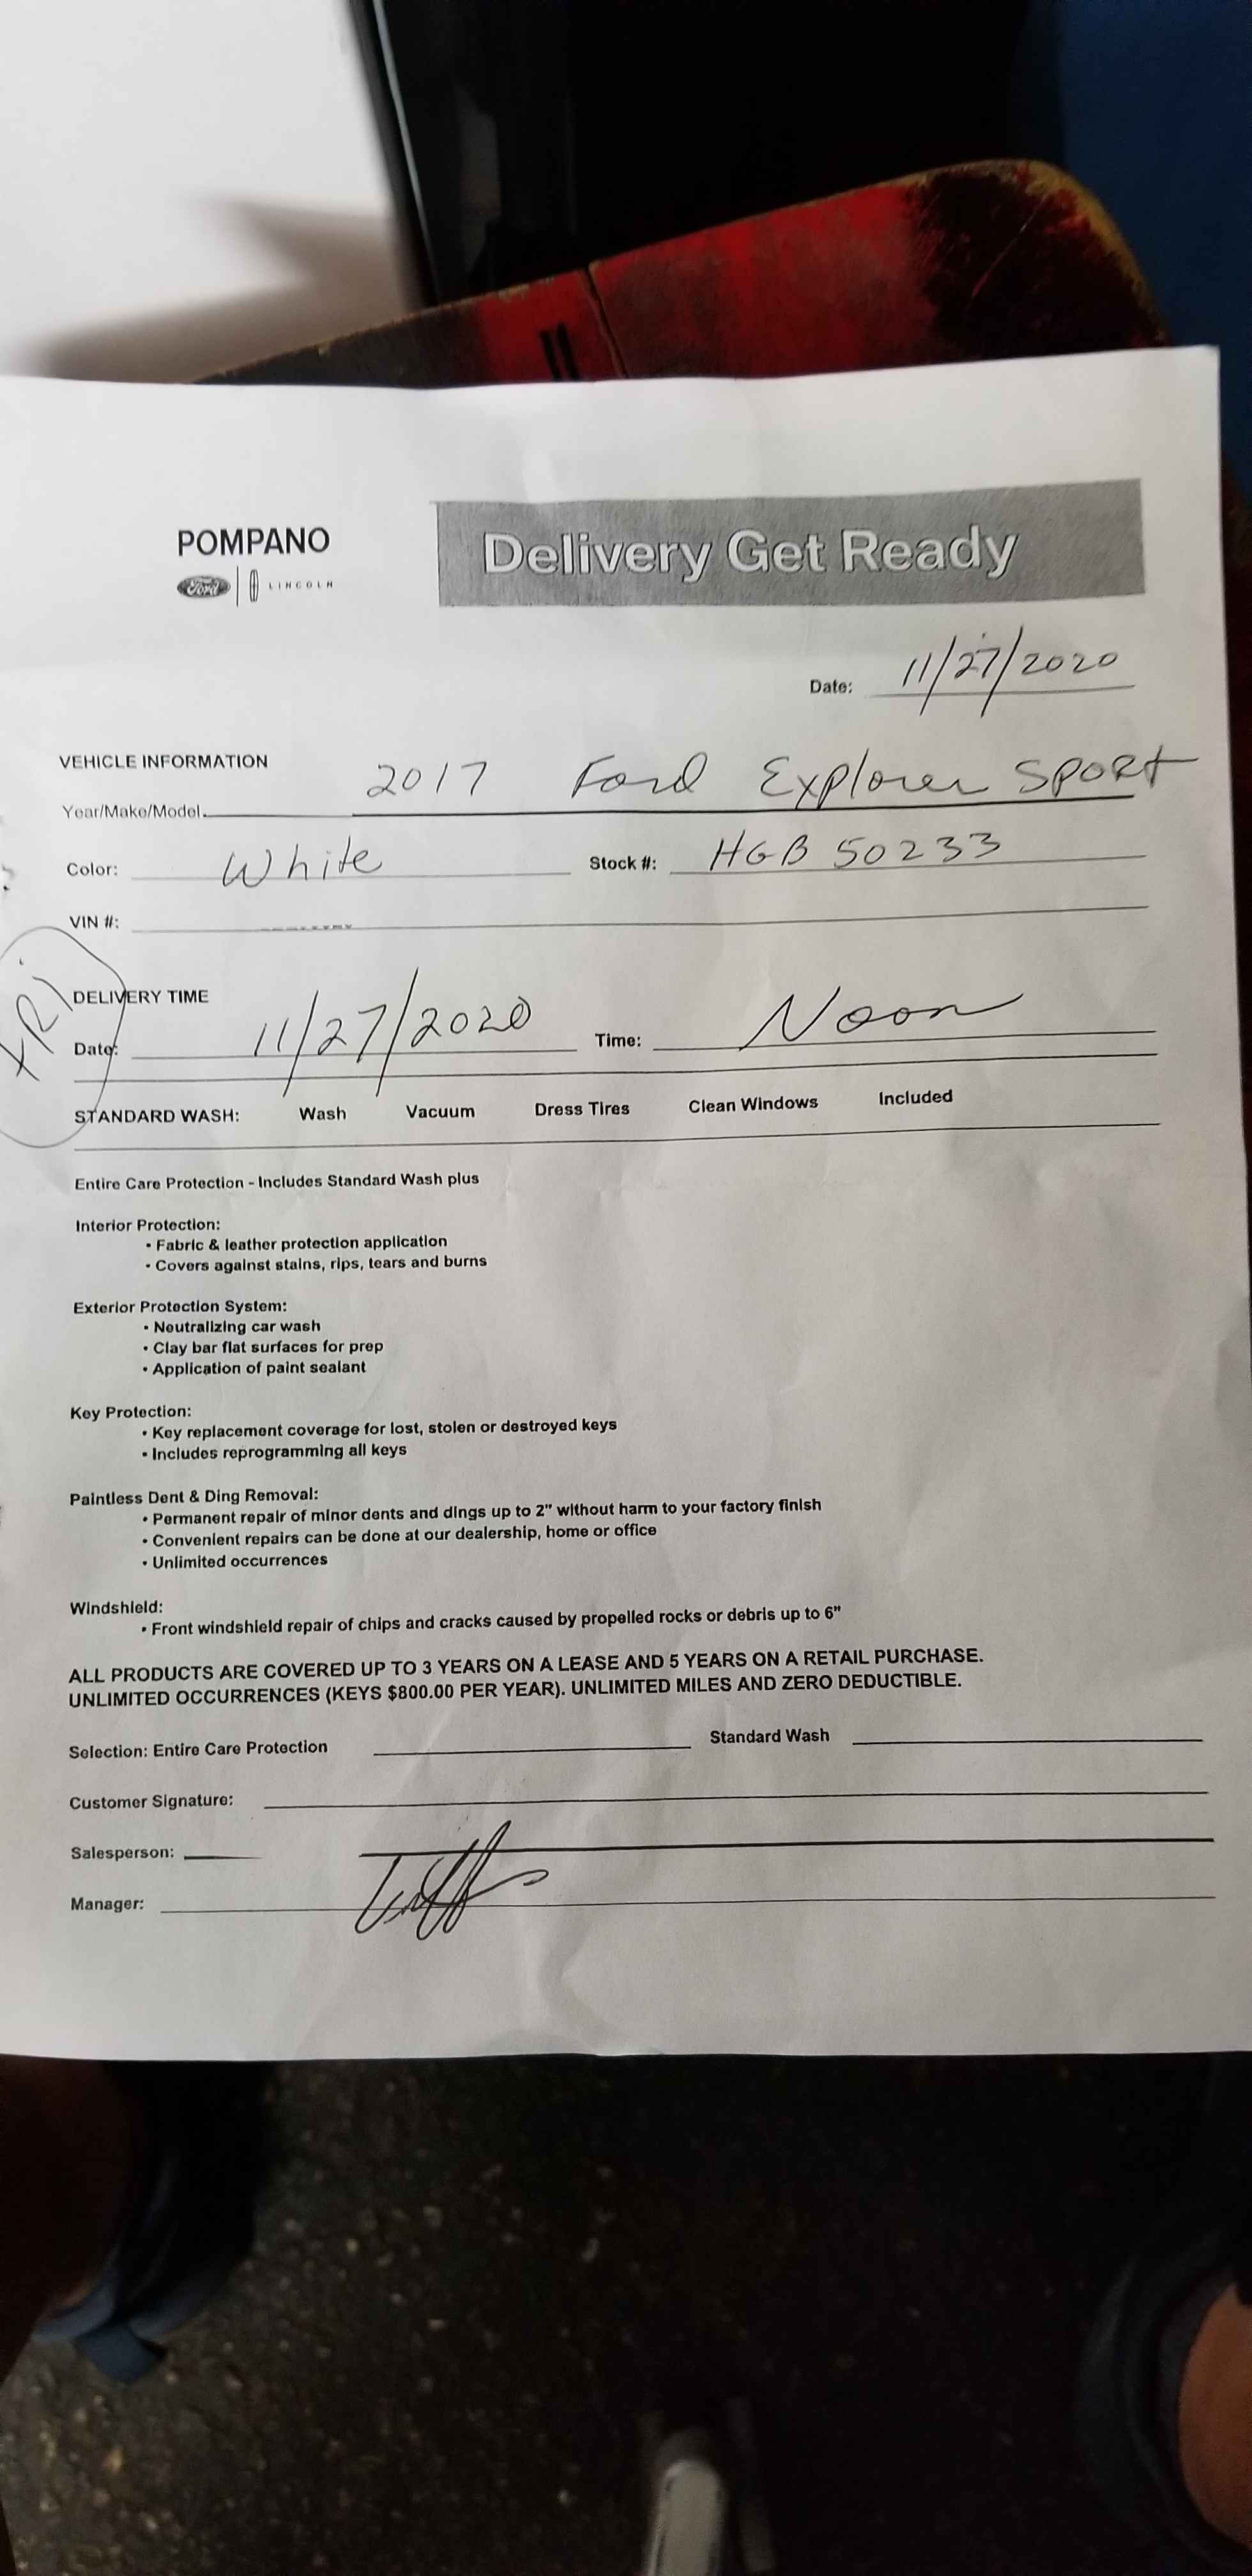 POMPANO
Ford | LINCOLN
Delivery Get Ready
Date: 11/27/2020
VEHICLE INFORMATION
Year/Make/Model 2017 Ford Explorer SPORT
Color: White Stock #: HGB 50233
VIN #:
FRI
DELIVERY TIME
Date: 11/27/2020 Time: Noon
STANDARD WASH: Wash Vacuum Dress Tires Clean Windows Included
Entire Care Protection - Includes Standard Wash plus
Interior Protection:
• Fabric & leather protection application
• Covers against stains, rips, tears and burns
Exterior Protection System:
• Neutralizing car wash
• Clay bar flat surfaces for prep
• Application of paint sealant
Key Protection:
• Key replacement coverage for lost, stolen or destroyed keys
• Includes reprogramming all keys
Paintless Dent & Ding Removal:
• Permanent repair of minor dents and dings up to 2" without harm to your factory finish
• Convenient repairs can be done at our dealership, home or office
• Unlimited occurrences
Windshield:
• Front windshield repair of chips and cracks caused by propelled rocks or debris up to 6"
ALL PRODUCTS ARE COVERED UP TO 3 YEARS ON A LEASE AND 5 YEARS ON A RETAIL PURCHASE.
UNLIMITED OCCURRENCES (KEYS $800.00 PER YEAR). UNLIMITED MILES AND ZERO DEDUCTIBLE.
Selection: Entire Care Protection Standard Wash
Customer Signature:
Salesperson:
Manager: